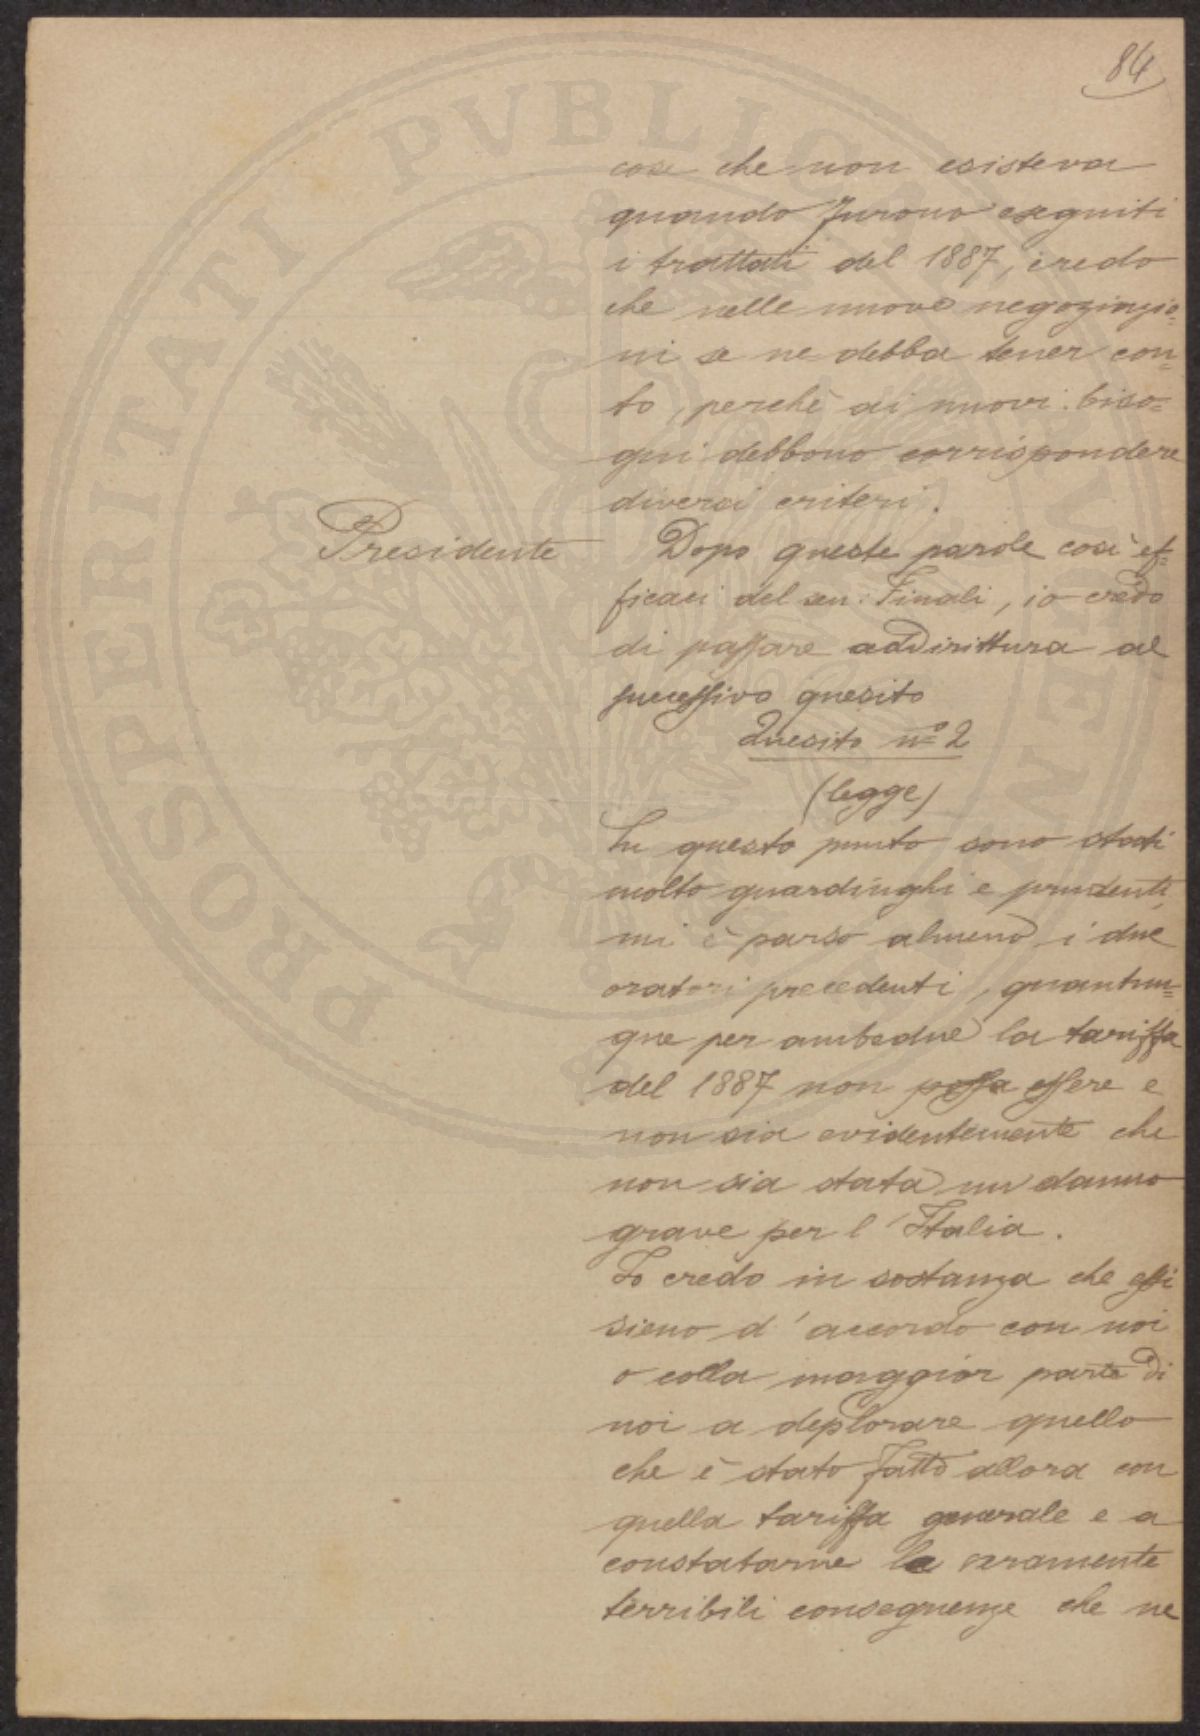 84
cose che non esisteva
quando furono eseguiti
i trattati del 1887, credo
che nelle nuove negoziazio=
ni se ne debba tener con=
to, perchè ai nuovi biso=
gni debbono corrispondere
diversi criteri.
Presidente Dopo queste parole così ef=
ficaci del sen. Finali, io credo
di passare addirittura al
successivo quesito
Quesito nº 2
(legge)
In questo punto sono stati
molto guardinghi e prudenti,
mi è parso almeno i due
oratori precedenti, quantun=
que per ambedue la tariffa
del 1887 non possa essere e
non sia evidentemente che
non sia stata un danno
grave per l'Italia.
Io credo in sostanza che essi
sieno d'accordo con noi
o colla maggior parte di
noi a deplorare quello
che è stato fatto allora con
quella tariffa generale e a
constatarne le veramente
terribili conseguenze che ne
PROSPERITATI PVBLICAE